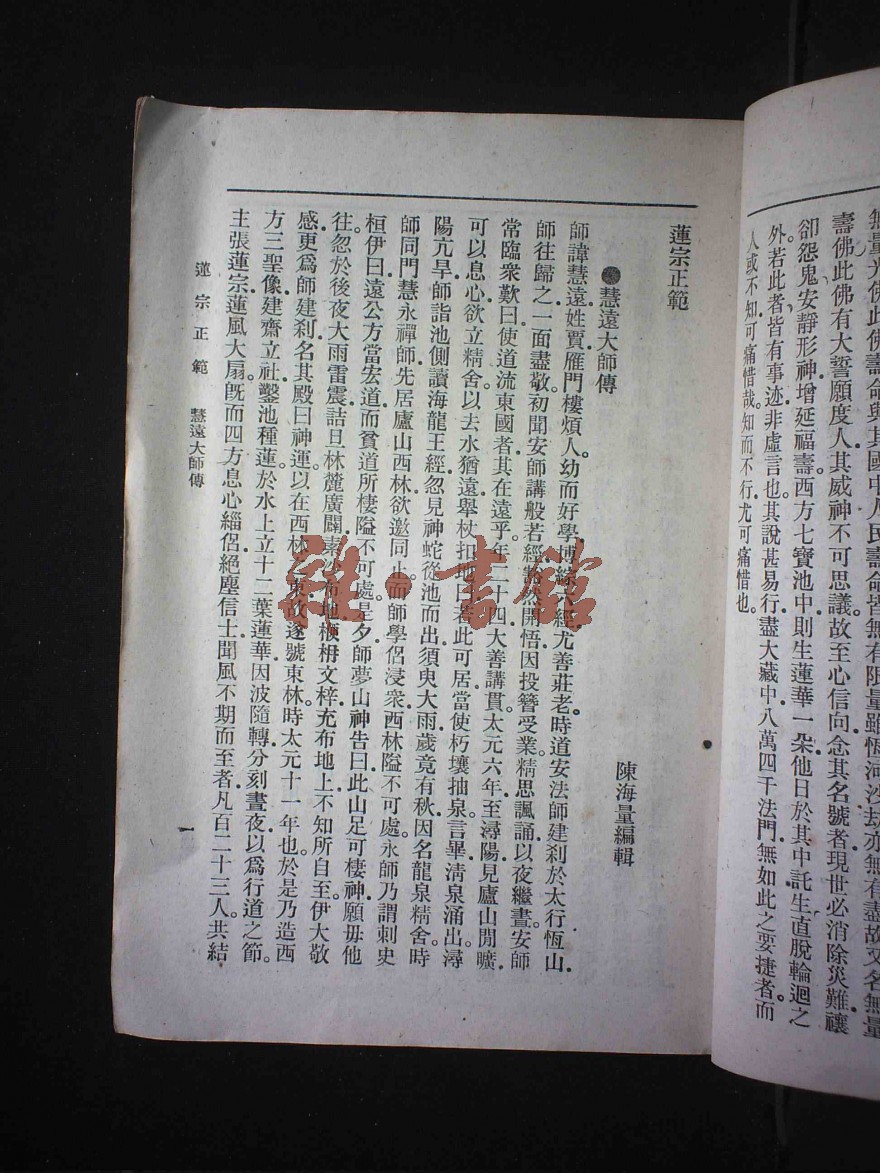 無量光佛此佛壽命與其國中人民壽命皆無有限量雖恆河沙劫亦無有盡故又名無量
壽佛此佛有大誓願度人其威神不可思議故至心信向念其名號者現世必消除災難禳
卻怨鬼安靜形神增延福壽西方七寶池中則生蓮華一朶他日於其中託生直脫輪迴之
外若此者皆有事迹非虛言也其說甚易行盡大藏中八萬四千法門無如此之要捷者而
人或不知可痛惜哉。知而不行尤可痛惜也。
蓮宗正範
陳海量編輯
●慧遠大師傳
師諱慧遠姓賈雁門樓煩人。幼而好學博綜六經尤善莊老。時道安法師建刹於太行恆山
師往歸之一面盡敬。初聞安師講般若經豁然開悟因投簪受業精思諷誦以夜繼晝。安師
常臨衆歎曰使道流東國者其在遠乎年二十四大善講貫。太元六年至潯陽見廬山閒曠
可以息心欲立精舍。以去水猶遠舉杖扣地曰若此可居當使朽壤抽泉。言畢淸泉涌出。潯
陽亢旱師詣池側讀海龍王經忽見神蛇從池而出須臾大雨歲竟有秋因名龍泉精舍時
師同門慧永禪師先居廬山西林欲邀同止。而師學侶浸衆西林隘不可處。永師乃謂刺史
桓伊曰遠公方當宏道而貧道所棲隘不可處是夕師夢山神告曰此山足可棲神願毋他
往。忽於後夜大雨雷震詰旦林麓廣闢素沙布地楩枏文梓充布地上不知所自至伊大敬
感更爲師建刹名其殿曰神運以在西林之東故遂號東林時太元十一年也。於是乃造西
方三聖像建齋立社鑿池種蓮於水上立十二葉蓮華因波隨轉分刻晝夜以爲行道之節。
主張蓮宗蓮風大扇。旣而四方息心緇侶絕塵信士聞風不期而至者凡百二十三人。共結
蓮宗正範 慧遠大師傳
一
雅·書館